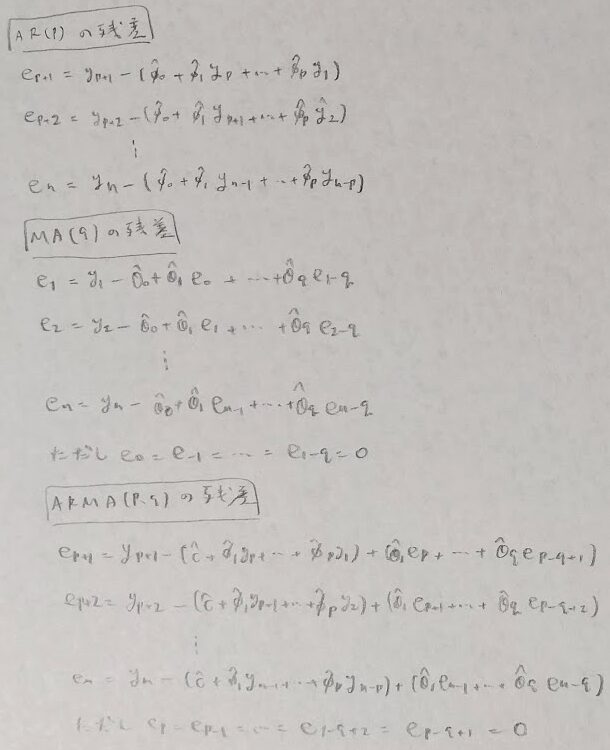 AR(p)の残差
e_{p+1} = y_{p+1} - (φ̂_0 + φ̂_1 y_p + … + φ̂_p y_1)
e_{p+2} = y_{p+2} - (φ̂_0 + φ̂_1 y_{p+1} + … + φ̂_p ŷ_2)
⋮
e_n = y_n - (φ̂_0 + φ̂_1 y_{n-1} + … + φ̂_p y_{n-p})
MA(q)の残差
e_1 = y_1 - θ̂_0 + θ̂_1 e_0 + … + θ̂_q e_{1-q}
e_2 = y_2 - θ̂_0 + θ̂_1 e_1 + … + θ̂_q e_{2-q}
⋮
e_n = y_n - θ̂_0 + θ̂_1 e_{n-1} + … + θ̂_q e_{n-q}
ただし e_0 = e_{-1} = … = e_{1-q} = 0
ARMA(p,q)の残差
e_{p+1} = y_{p+1} - (ĉ + φ̂_1 y_p + … + φ̂_p y_1) + (θ̂_1 e_p + … + θ̂_q e_{p-q+1})
e_{p+2} = y_{p+2} - (ĉ + φ̂_1 y_{p+1} + … + φ̂_p y_2) + (θ̂_1 e_{p+1} + … + θ̂_q e_{p-q+2})
⋮
e_n = y_n - (ĉ + φ̂_1 y_{n-1} + … + φ̂_p y_{n-p}) + (θ̂_1 e_{n-1} + … + θ̂_q e_{n-q})
ただし e_p = e_{p-1} = … = e_{p-q+2} = e_{p-q+1} = 0